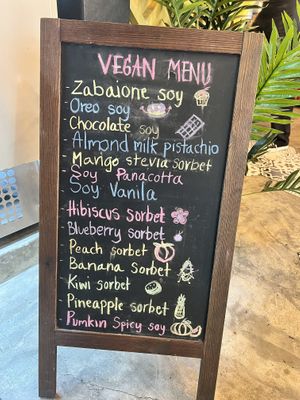 VEGAN MENU
Zabaione soy
Oreo soy
Chocolate soy
Almond milk pistachio
Mango stevia sorbet
Soy Panacotta
Soy Vanila
Hibiscus sorbet
Blueberry sorbet
Peach sorbet
Banana Sorbet
Kiwi sorbet
Pineapple sorbet
Pumkin Spicy soy